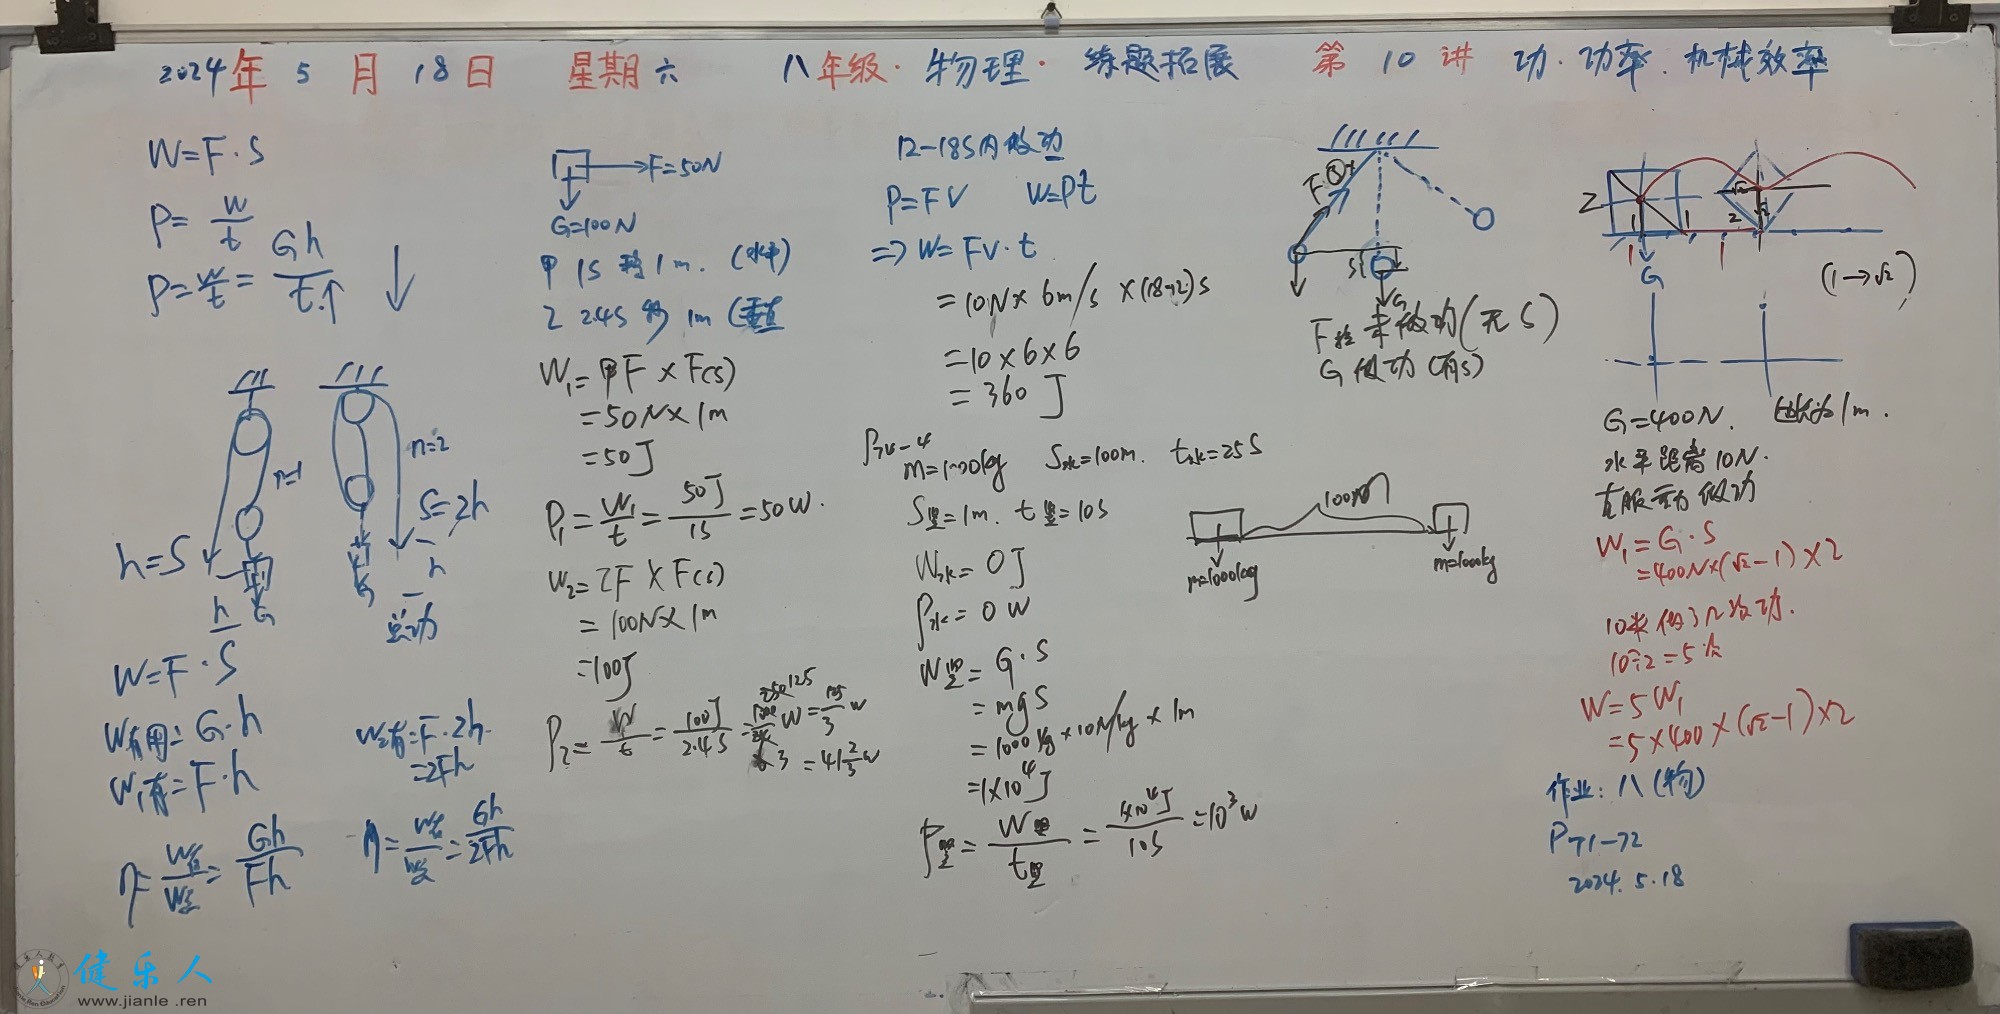 2024年5月18日 星期六 八年级·物理·练题拓展 第10讲 功·功率·机械效率
W=F·S
P=W/t
P=W/t=Gh/t↑
n=1
n=2
S=2h
h=S
h
G
h
总功
W=F·S
W有用=G·h
W有=F·h
W有=F·2h
=2Fh
η=W有/W总=Gh/Fh
η=W有/W总=Gh/2Fh
F=50N
G=100N
甲 1S 移 1m. (水平)
乙 2.4S 移 1m (垂直
W₁=甲F×F(s)
=50N×1m
=50J
P₁=W₁/t=50J/1S=50W.
W₂=乙F×F(s)
=100N×1m
=100J
P₂=W/t=100J/2.4S
=125/3 W
=41 2/3 W
12-18S内做功
P=FV W=Pt
=>W=FV·t
=10N×6m/s×(18-12)s
=10×6×6
=360J
m=1000kg S水=100m. t水=25S
S竖=1m. t竖=10S
W水=0J
P水=0W
W竖=G·S
=mgS
=1000kg×10N/kg×1m
=1×10⁴J
P竖=W竖/t竖=1×10⁴J/10S=10³W
100m
m=1000kg
m=1000kg
F拉
S
G
F拉未做功(无S)
G做功(有S)
2
1
1
√2
2
√2
1
1
G
(1→√2)
G=400N. 边长为1m.
水平距离10N.
克服重力做功
W₁=G·S
=400N×(√2-1)×2
10米做了几次功.
10÷2=5次
W=5W₁
=5×400×(√2-1)×2
作业:八(物)
P71-72
2024.5.18
健乐人
www.jianle.ren